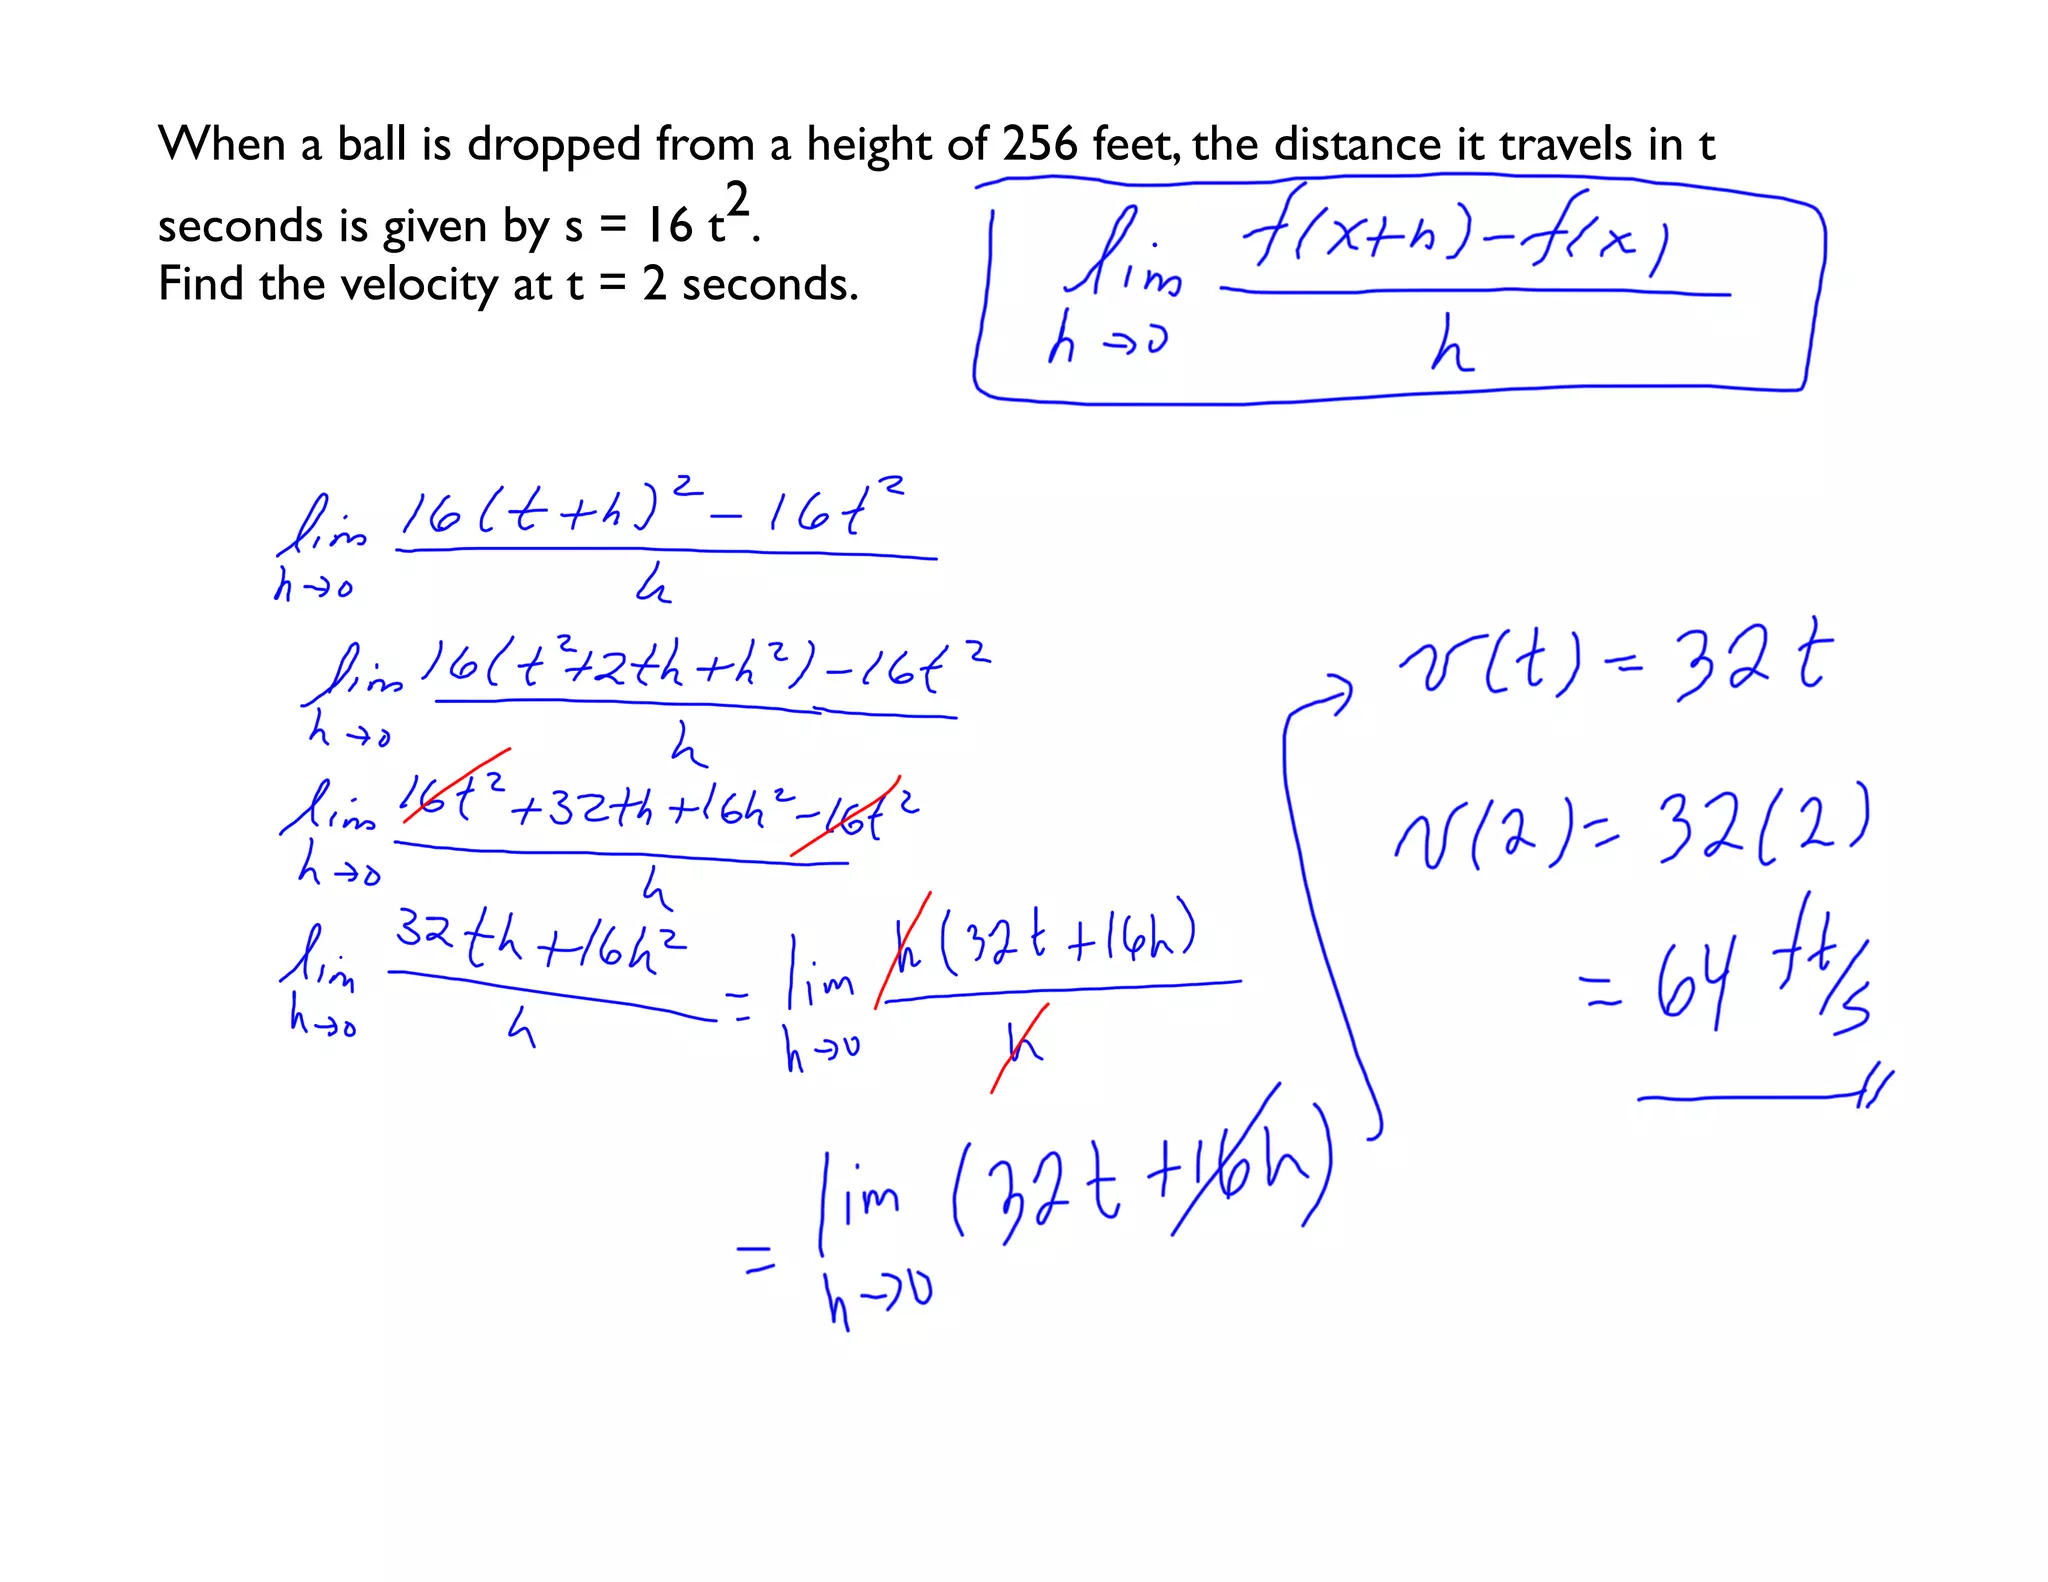 When a ball is dropped from a height of 256 feet, the distance it travels in t
seconds is given by s = 16 t².
Find the velocity at t = 2 seconds.
lim h→0 f(x+h)-f(x) / h
lim h→0 16(t+h)² - 16t² / h
lim h→0 16(t²+2th+h²) - 16t² / h
lim h→0 16t²+32th+16h²-16t² / h
lim h→0 32th+16h² / h = lim h→0 h(32t+16h) / h
= lim h→0 (32t+16h)
v(t) = 32t
v(2) = 32(2)
= 64 ft/s